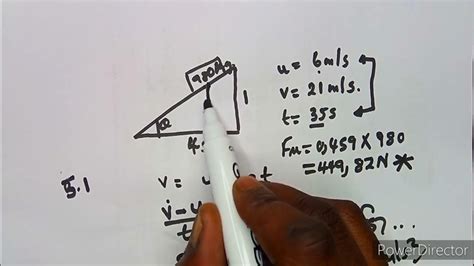 980kg
u = 6m/s
v = 21m/s.
t = 35s
1
θ
4
Fμ = 0,459 X 980
= 449,82N *
5.1
v = u t
v-u
t
PowerDirector